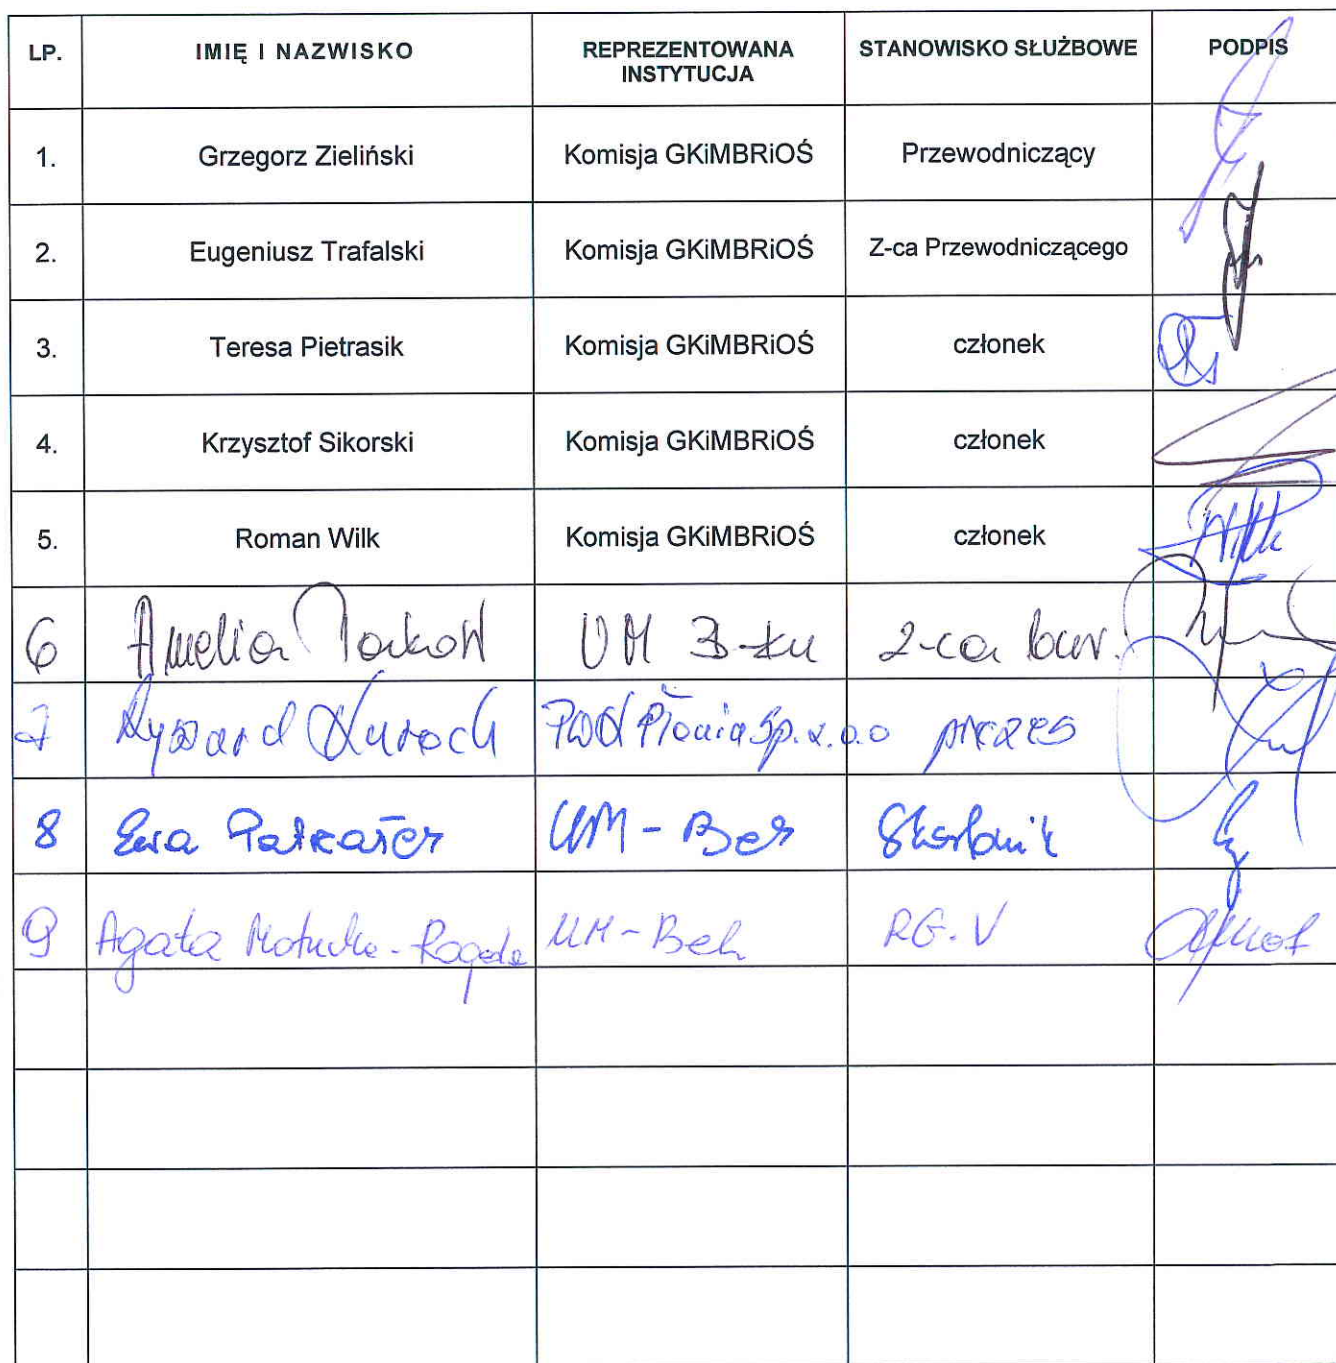 LP. IMIĘ I NAZWISKO REPREZENTOWANA INSTYTUCJA STANOWISKO SŁUŻBOWE PODPIS
1. Grzegorz Zieliński Komisja GKiMBRiOŚ Przewodniczący
2. Eugeniusz Trafalski Komisja GKiMBRiOŚ Z-ca Przewodniczącego
3. Teresa Pietrasik Komisja GKiMBRiOŚ członek
4. Krzysztof Sikorski Komisja GKiMBRiOŚ członek
5. Roman Wilk Komisja GKiMBRiOŚ członek Wilk
6 Amelia UM B-ku Z-ca
7 Ryszard Płonia Sp. z o.o prezes
8 Ewa UM - Skarbnik
9 Agata UM - RG.V